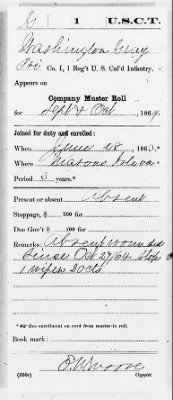 G 1 U.S.C.T.
Washington Gray
Pvt Co. I, 1 Reg't U. S. Col'd Infantry.
Appears on
Company Muster Roll
for Sept & Oct, 1864.
Joined for duty and enrolled:
When June 28, 1863.
Where Masons Island
Period 3 years.*
Present or absent Absent
Stoppage, $ 100 for
Due Gov't $ 100 for
Remarks: Absent
since Oct 27/64 Stop
1 wiper 20 cts
*See enrollment on card from muster-in roll.
Book mark:
(358c) Copyist.